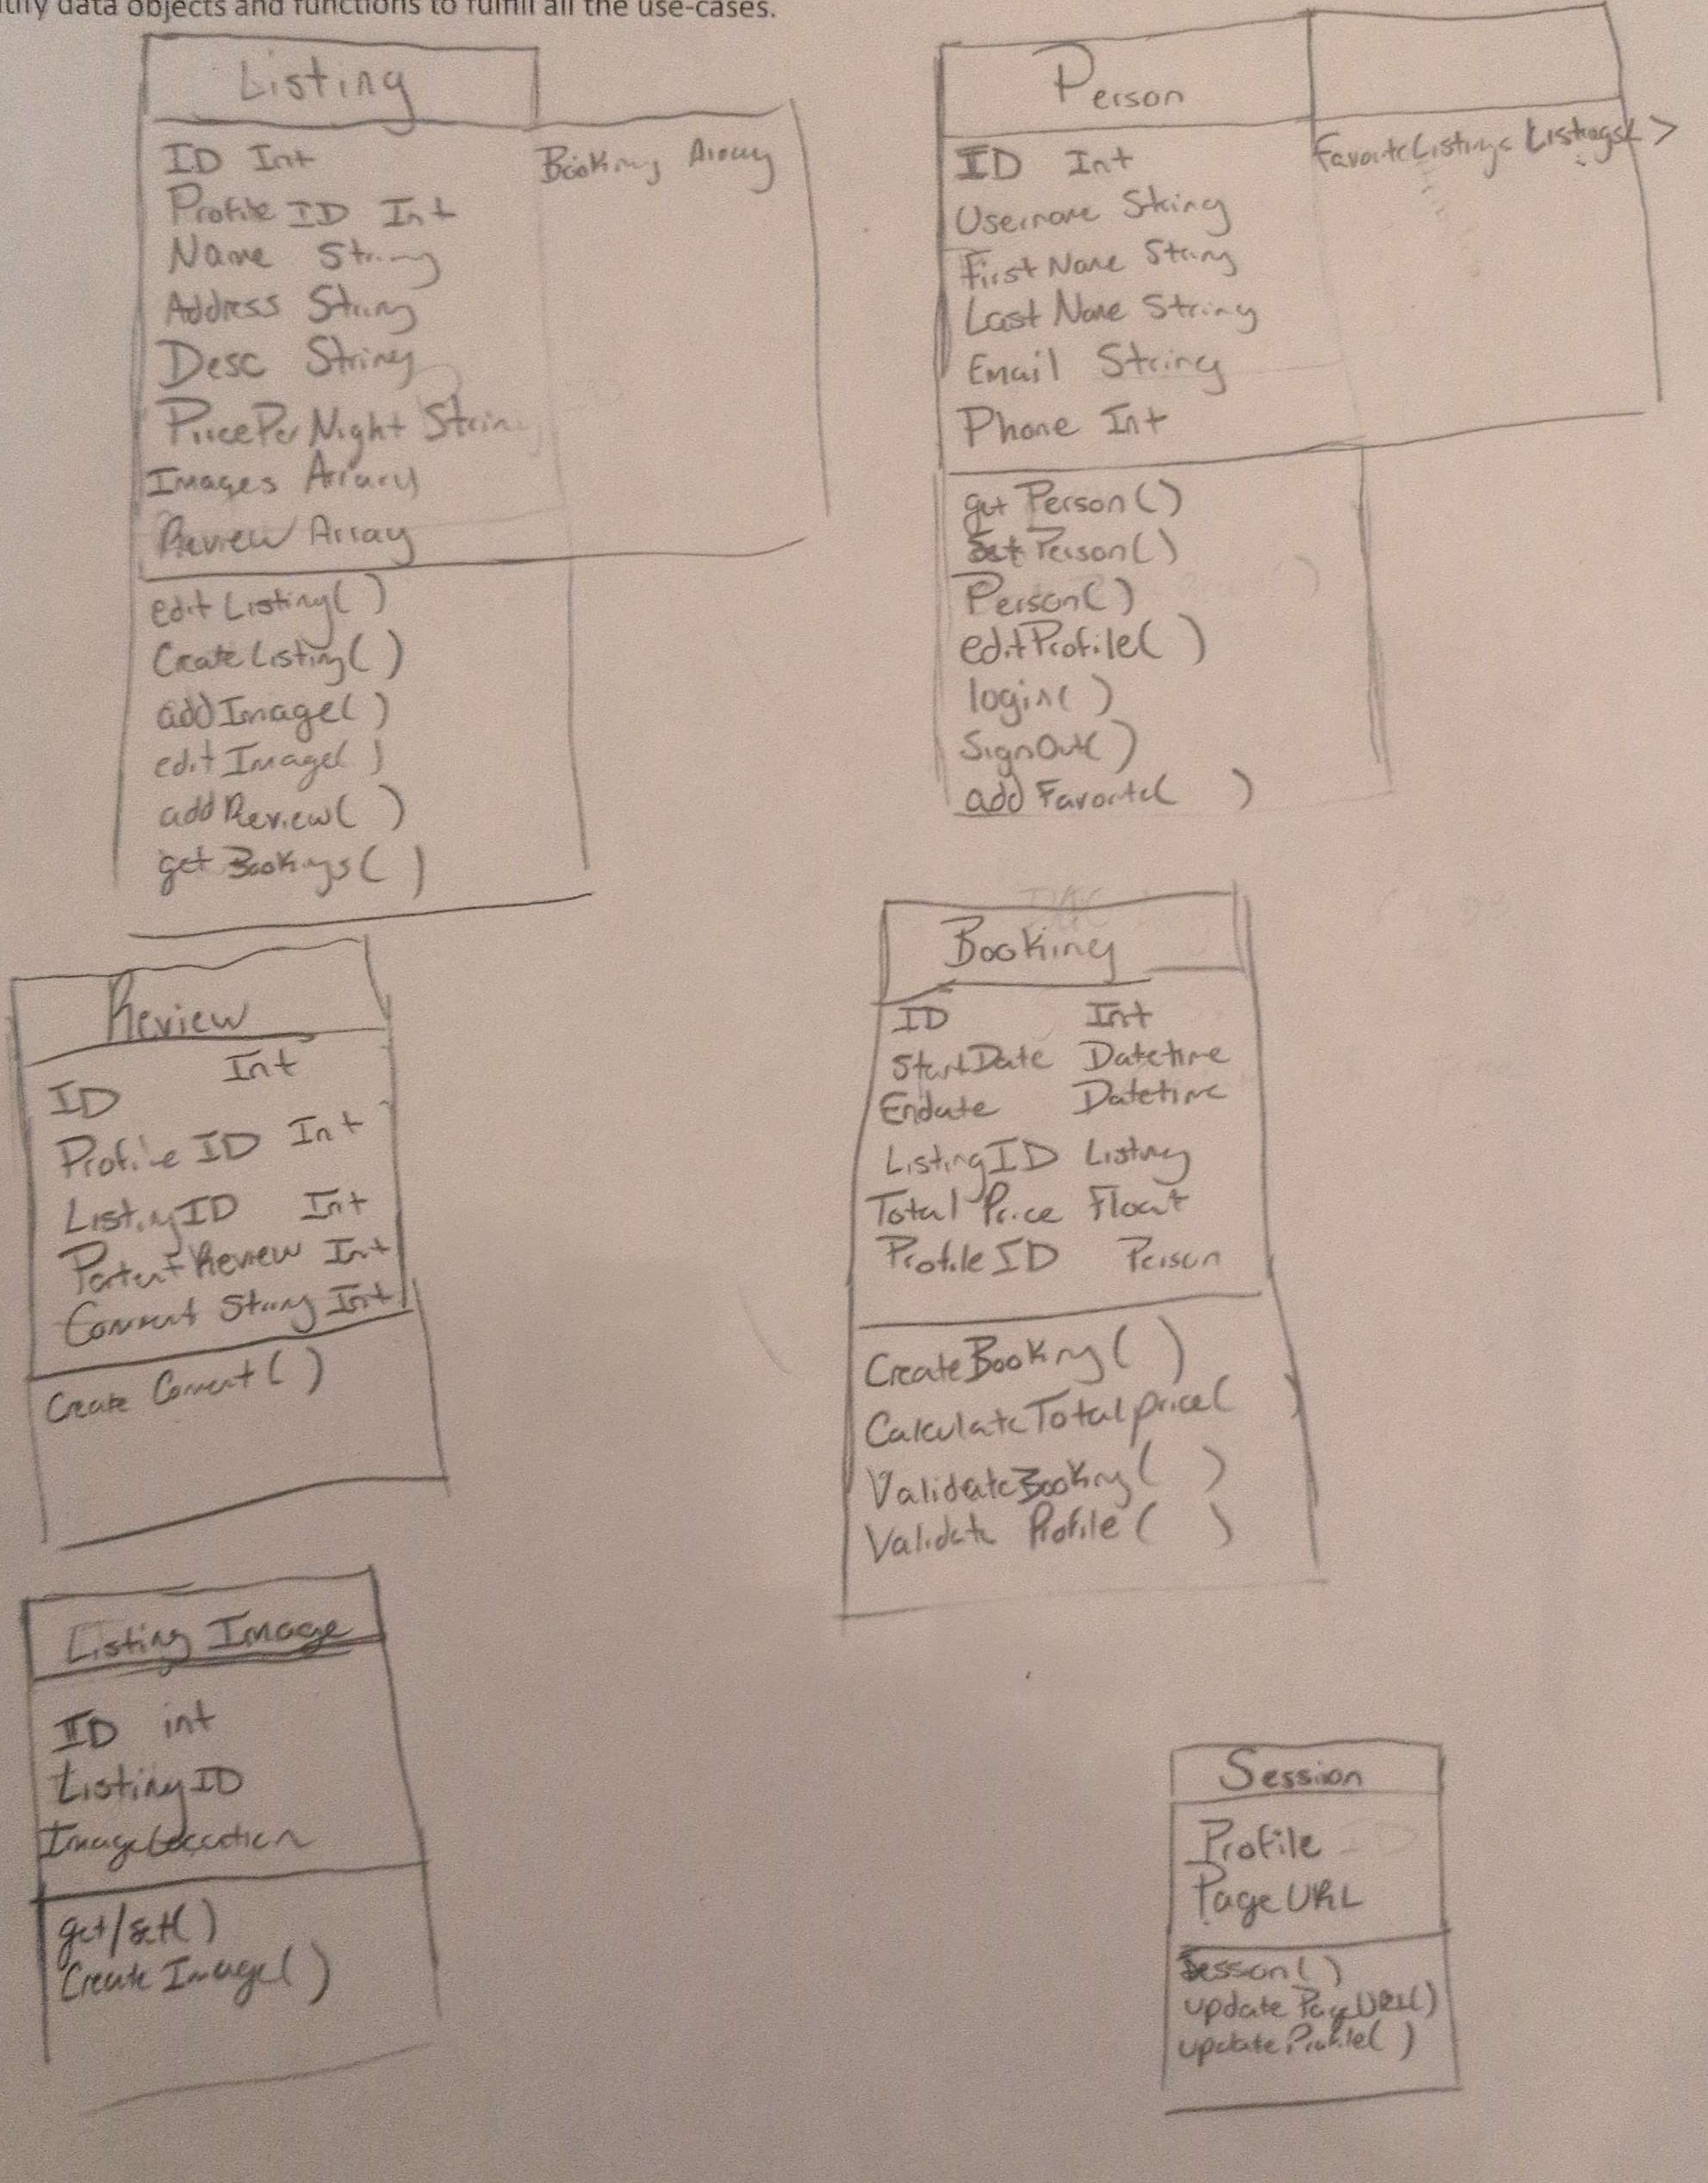 data objects and functions to fulfill all the use-cases.
Listing
ID Int
Profile ID Int
Name String
Address String
Desc String
PricePerNight String
Images Array
Review Array
Booking Array
edit Listing( )
Create Listing( )
add Image( )
edit Image( )
add Review( )
get Bookings( )
Person
ID Int
Username String
First Name String
Last Name String
Email String
Phone Int
FavoriteListings Listings< >
get Person( )
Set Person( )
Person( )
editProfile( )
login( )
SignOut( )
add Favorite( )
Review
ID Int
Profile ID Int
ListingID Int
Parent Review Int
Comment String Int
Create Comment( )
Booking
ID Int
StartDate Datetime
Endate Datetime
ListingID Listing
Total Price Float
ProfileID Person
CreateBooking( )
CalculateTotalprice( )
ValidateBooking( )
Validate Profile( )
Listing Image
ID int
ListingID
ImageLocation
get/set( )
Create Image( )
Session
Profile
Page URL
Session( )
update PageURL( )
update Profile( )